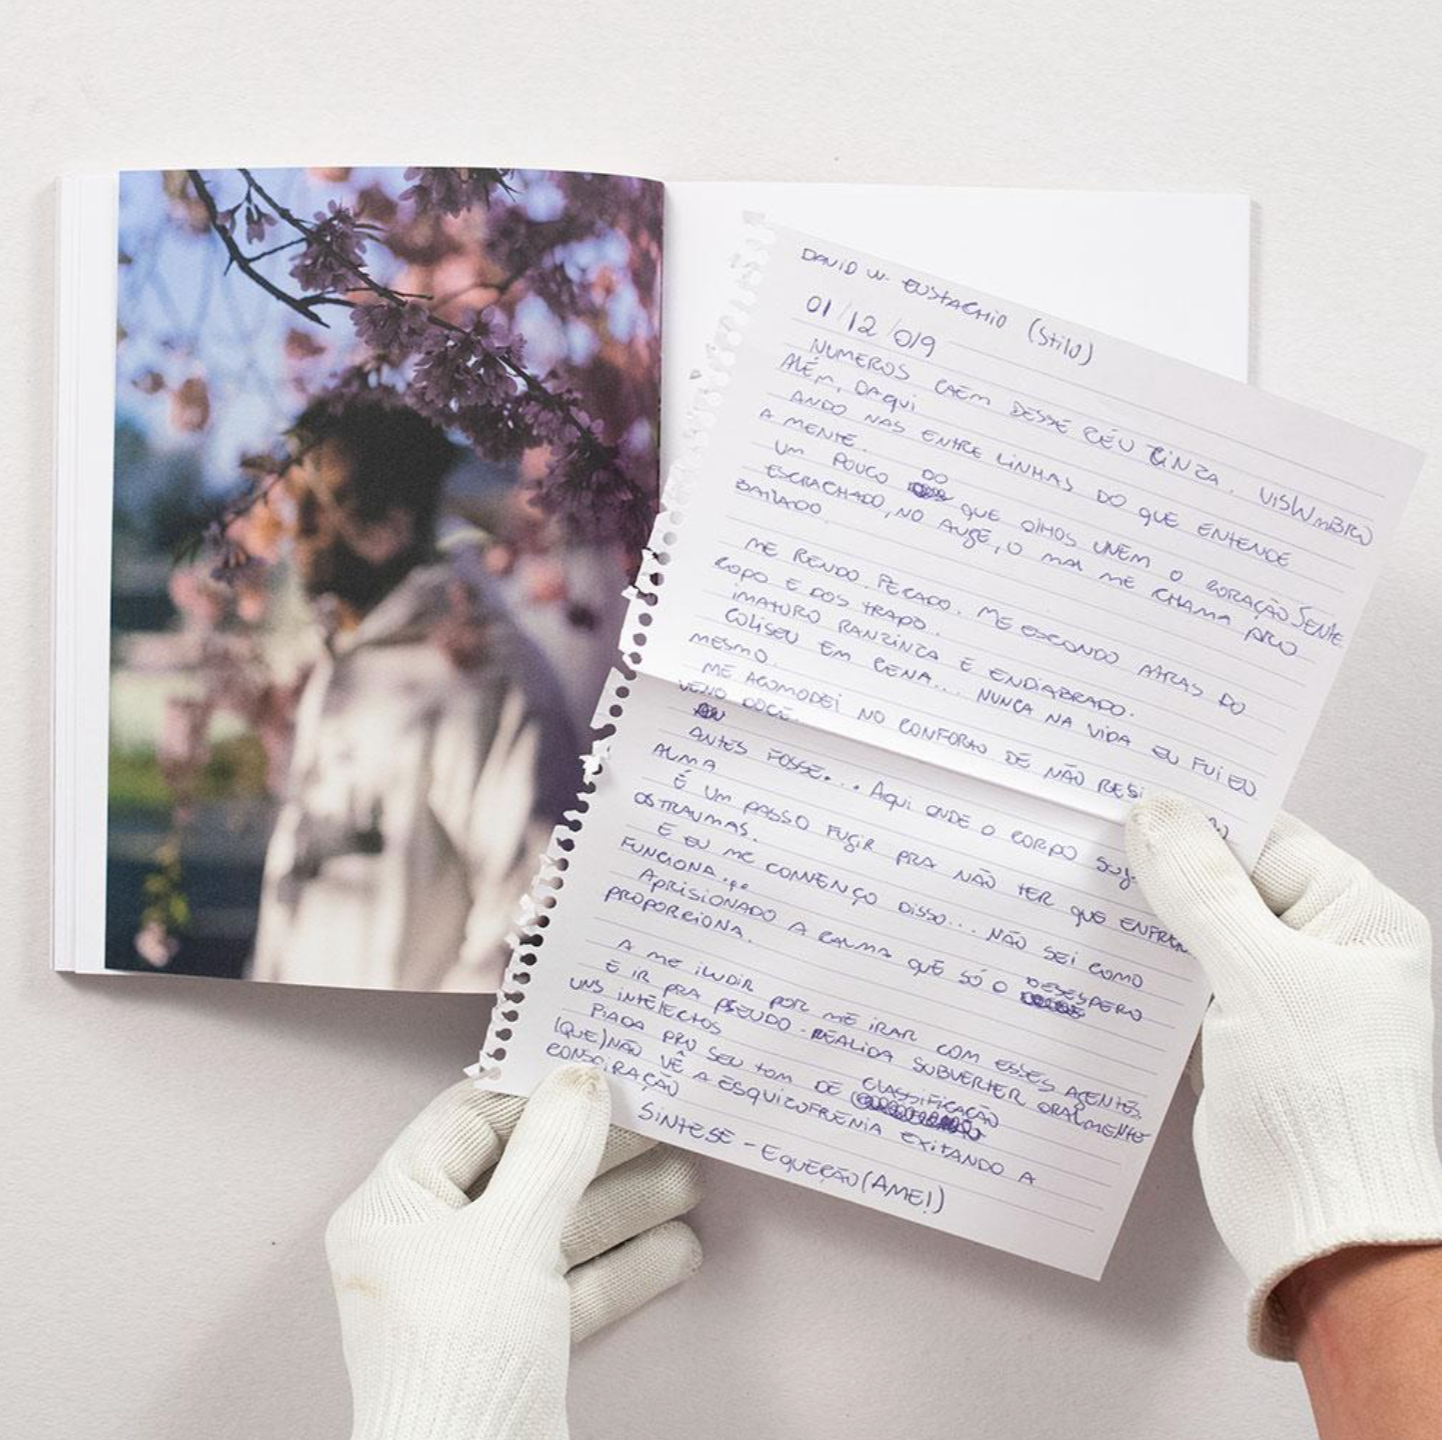 DAVID W. EUSTACHIO (Stilo)
01/12/019
NUMEROS CAEM DESSE CÉU CINZA. VISLUMBRO
ALÉM, DAQUI
ANDO NAS ENTRE LINHAS DO QUE ENTENDE
A MENTE.
UM POUCO DO QUE OLHOS UNEM O CORAÇÃO SENTE
ESCRACHADO, NO AUGE, O MAL ME CHAMA PRO
BAILADO.
ME RENDO. PECADO. ME ESCONDO ATRAS DO
COPO E DOS TRAPO.
IMATURO RANZINZA E ENDIABRADO.
COLISEU EM CENA... NUNCA NA VIDA EU FUI EU
MESMO.
ME ACOMODEI NO CONFORTO DE NÃO RESI
VENO DOCE...
ANTES FOSSE... AQUI ONDE O CORPO SUJ
ALMA
É UM PASSO FUGIR PRA NÃO TER QUE ENFREN
OS TRAUMAS.
E EU ME CONVENÇO DISSO... NÃO SEI COMO
FUNCIONA...
APRISIONADO A CALMA QUE SÓ O DESESPERO
PROPORCIONA.
A ME ILUDIR POR ME IRAR COM ESSES AGENTES.
E IR PRA PSEUDO-REALIDA SUBVERTER ORALMENTE
UNS INTELECTOS
PIADA PRO SEU TOM DE CLASSIFICAÇÃO
(QUE) NÃO VÊ A ESQUIZOFRENIA EXITANDO A
CONSPIRAÇÃO
SINTESE - EQUEÇÃO (AMEI)